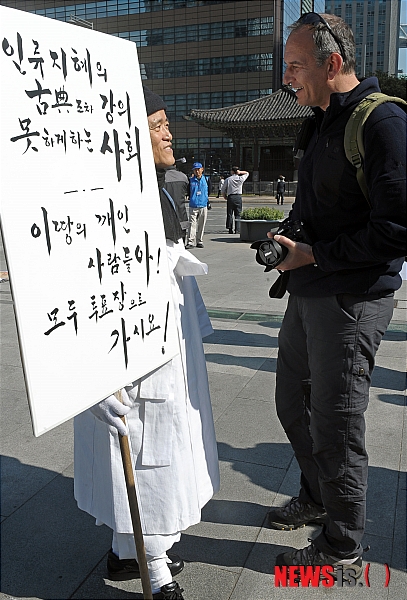 인류 지혜의
古典조차 강의
못하게하는 사회
이땅의 깨인
사람들아!
모두 투표장으로
가시요!
NEWSis.( )